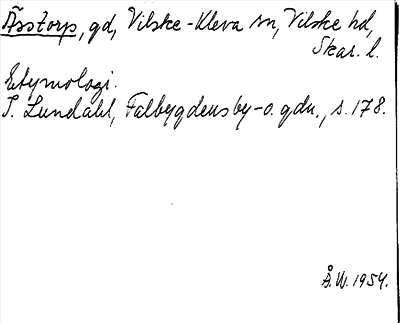 Åsstorp, gd, Vilske-Kleva sn, Vilske hd,
Skar. l.
Etymologi.
I. Lundahl, Falbygdens by- o. gdn., s. 178.
Å.W. 1954.